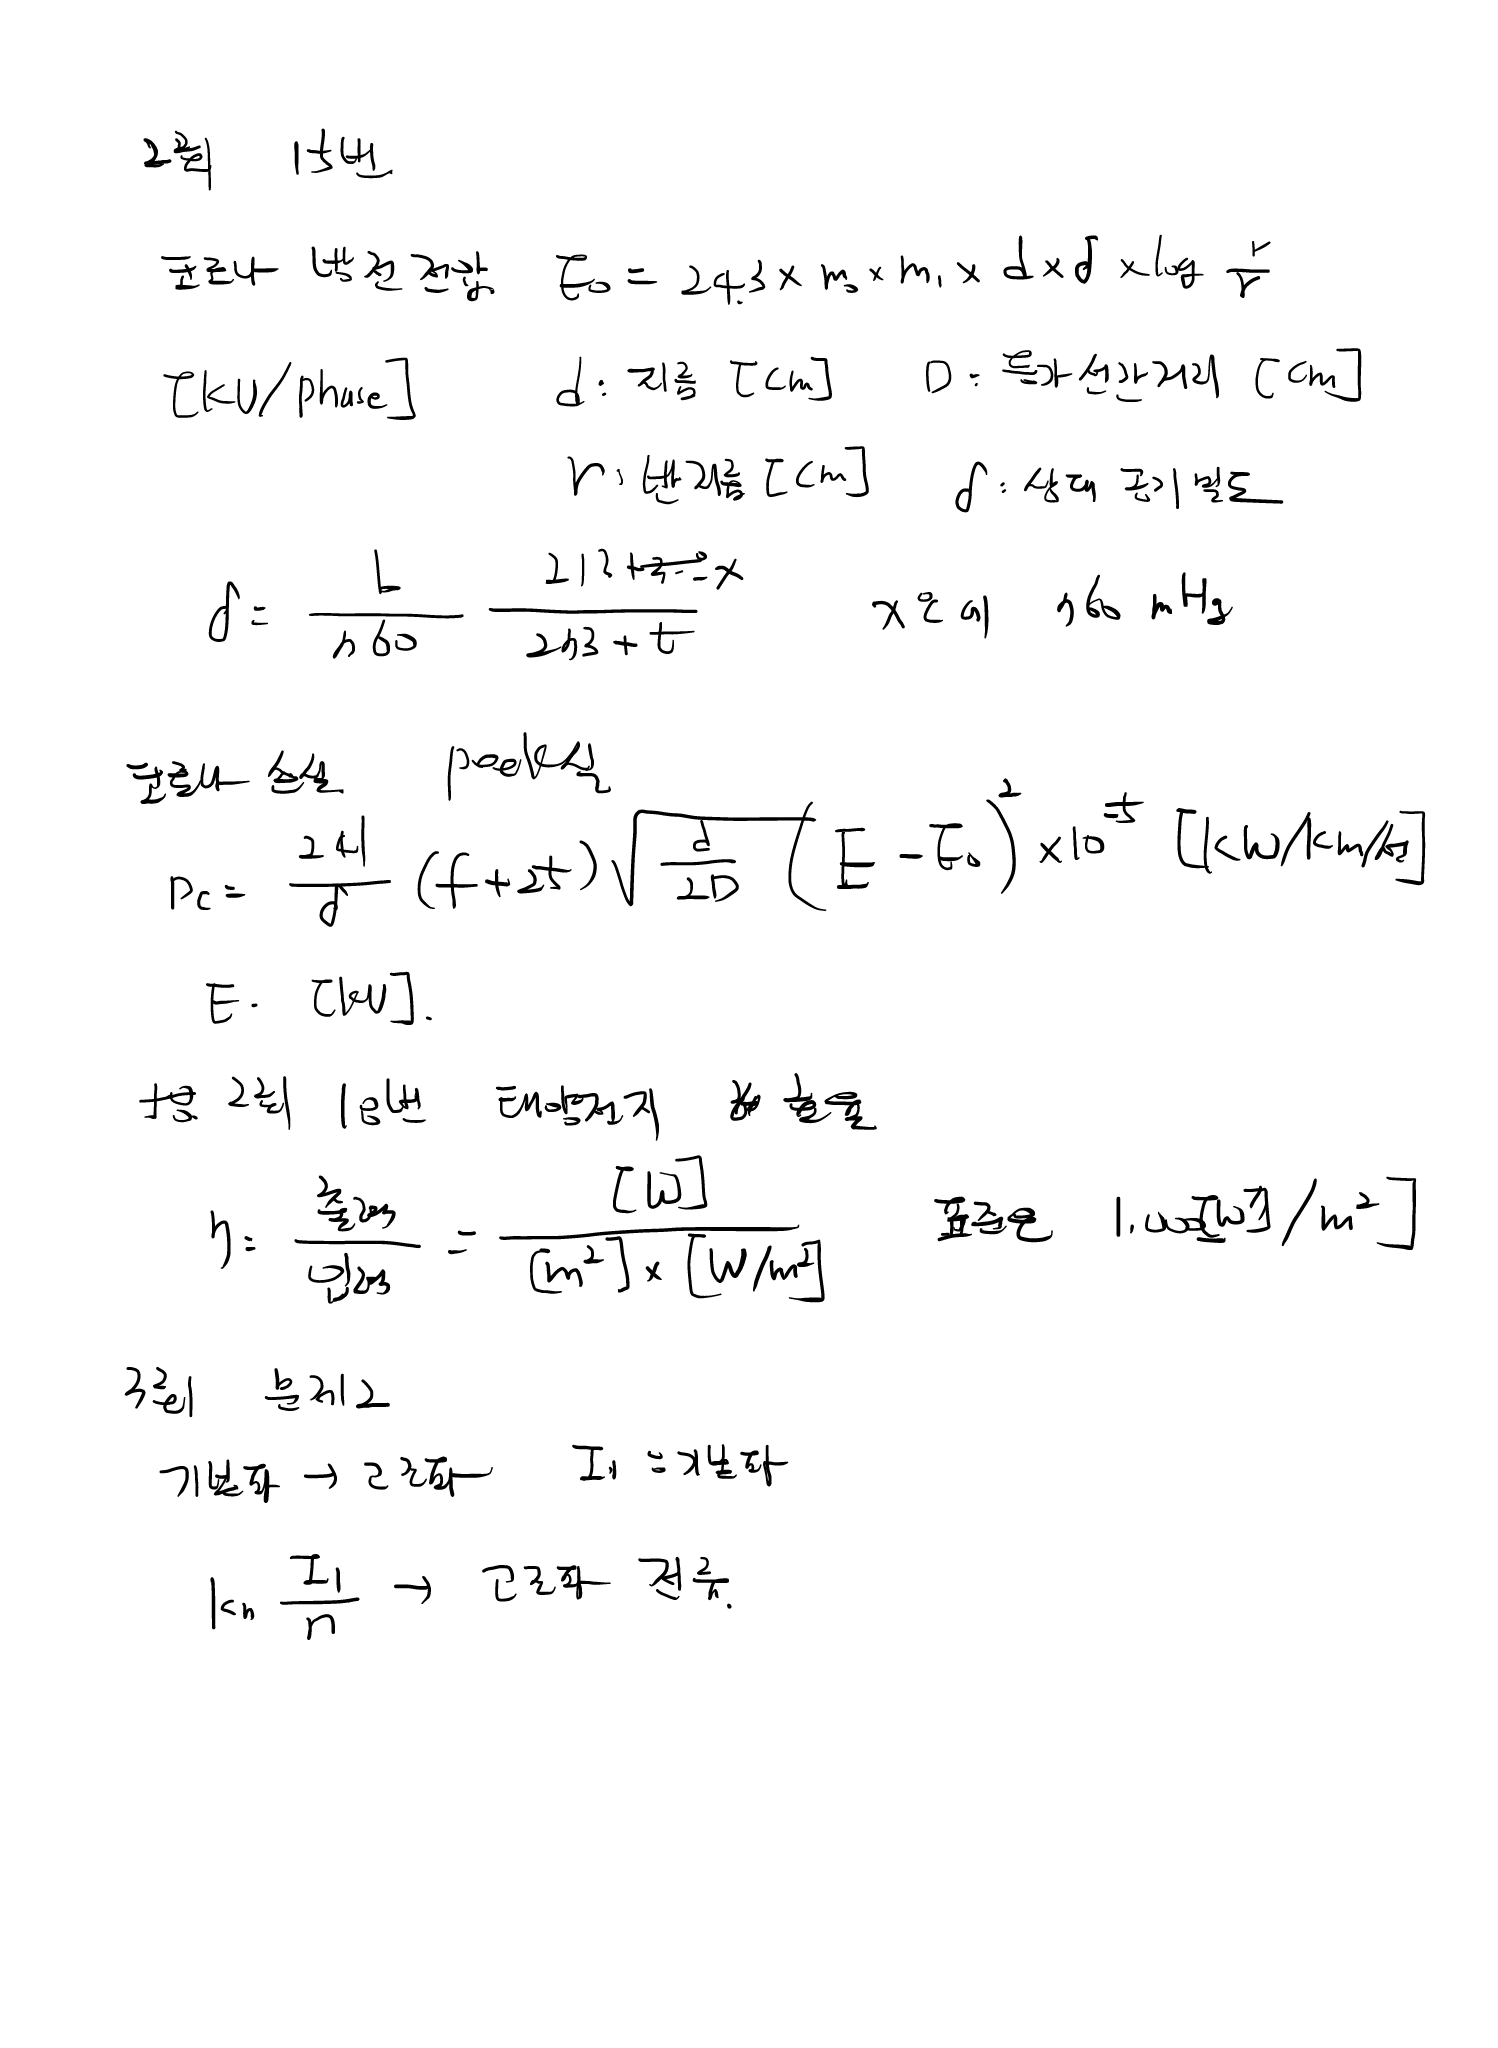 2회 15번
코로나 방전 전압 E₀ = 24.3 × m₀ × m₁ × d × δ × log r/r
[kV/phase] d : 지름 [cm] D : 등가선간거리 [cm]
r : 반지름 [cm] δ : 상대 공기 밀도
δ = b/760 273+x/273+t 760 mHg
코로나 손실 peek식
Pc = 241/δ (f+25) √(d/2D) (E - E₀)² × 10⁻⁵ [kW/km/선]
E. [kV].
2회 18번 태양전지 효율
η = 출력/입력 = [W]/[m²] × [W/m²] 표준은 1,000[W]/m²]
3회 문제2
기본파 → 고조파 I₁ = 기본파
kn I₁/n → 고조파 전류.